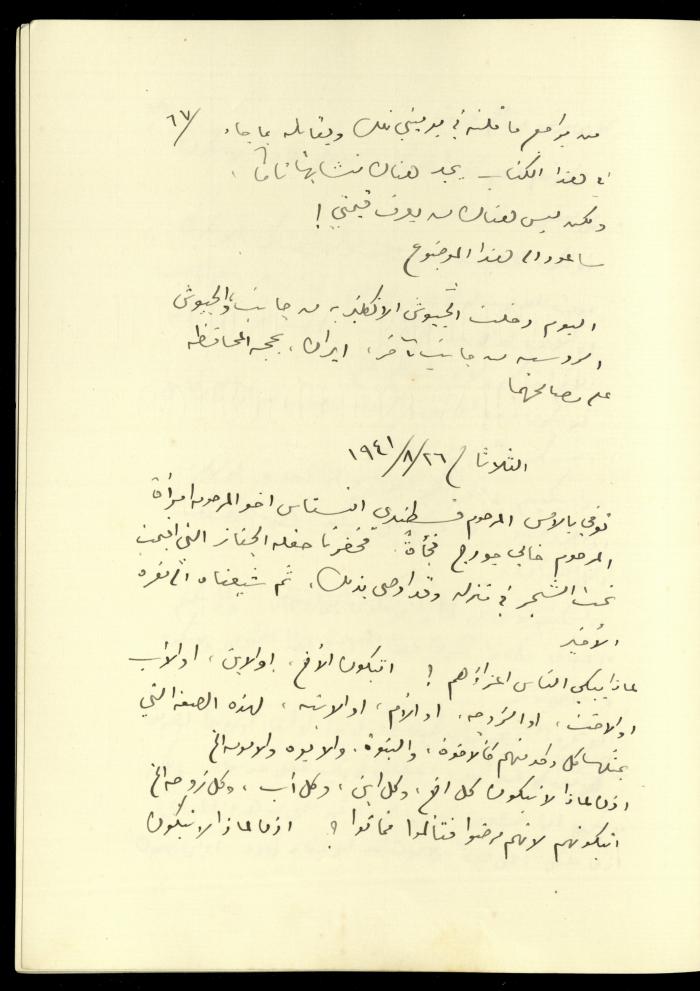 ٦٧/
من يراجع ما قلته في يوميتي تلك ويقابله بما جاء
في هذا الكتاب يجد هناك تشابها تاماً.
ولكن ليس هناك من يعرف قيمتي!
سأعود الى هذا الموضوع
اليوم دخلت الجيوش الانكليزية من جانب، والجيوش
الروسية من جانب آخر، ايران، بحجة المحافظة
على مصالحهما
الثلاثاء ٢٦/٨/١٩٤١
توفي بالامس المرحوم قسطندي انستاس اخو المرحومه امرأة
المرحوم خالي جورج فجأةً. فحضرنا حفله الجناز التي اقيمت
تحت الشجر في منزله وقد اوصى بذلك، ثم شيعناه الى مقره
الأخير
لماذا يبكي الناس اعزاؤهم؟ اتبكون الأخ، اوالابن، اوالاب
اوالاخت، او الزوجه، او الأم، او الابنه، لهذه الصفه التي
يمثلها كل واحد منهم كالاخوة، والبنوة، والابوه والامومه الخ
اذن لماذا لا تبكون كل اخ، وكل ابن، وكل أب، وكل زوجه الخ
اتبكونهم لانهم مرضوا فتألموا فماتوا؟ اذن لماذا لا تبكون